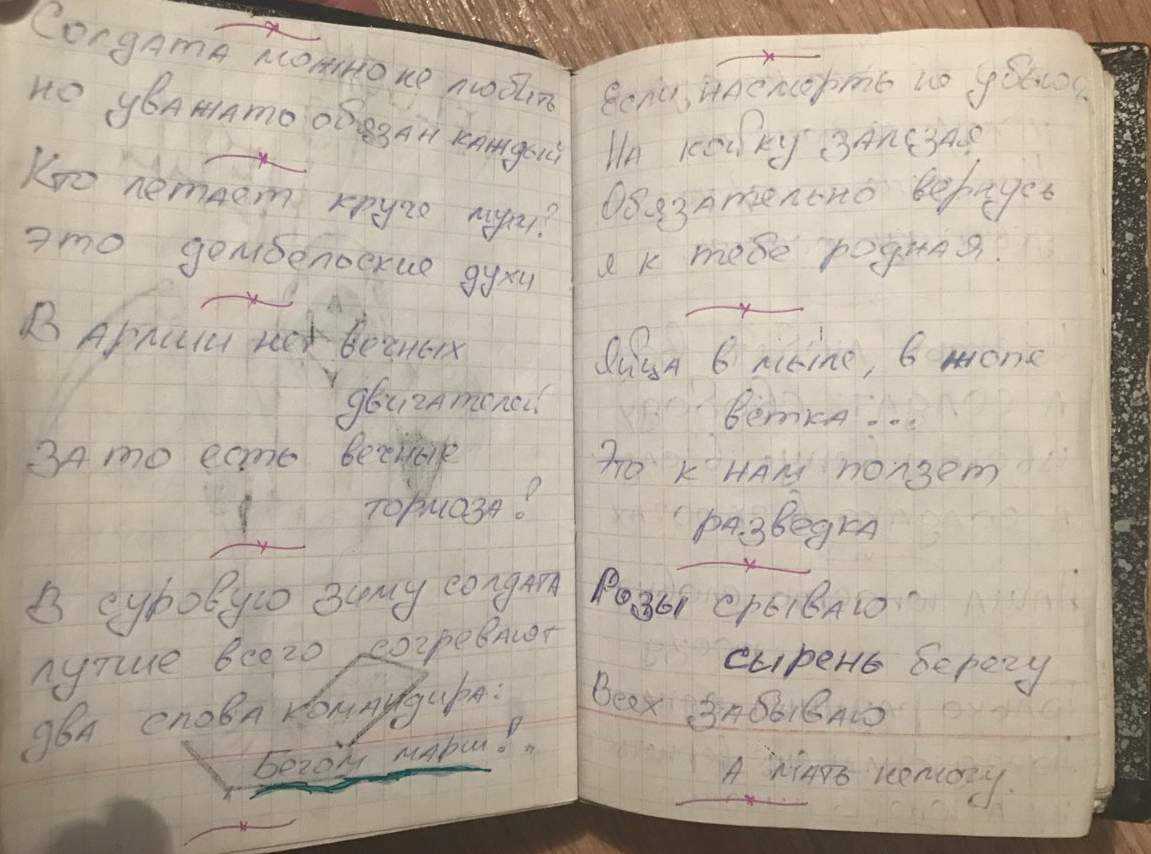 Солдата можно не любить
но уважато обязан каждый
Кто летает круче мух?
Это дембельские духи
В Армии нет вечных
двигателей!
За то есть вечные
тормоза!
В суровую зиму солдата
лутше всего согревают
два слова командира:
Бегом марш!"
Если, насмерть не убьюс,
На койку залезая
Обязательно вернусь
я к тебе родная.
Яйца в мыле, в жопе
ветка...
Это к нам ползет
разведка
Розы срываю
сырень берегу
Всех забываю
А мать немогу.